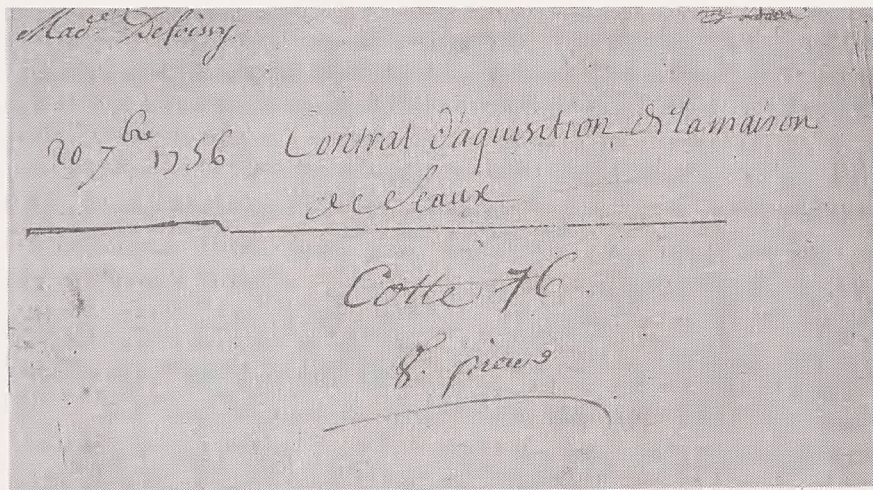 Mad.e Defoissy
20 7bre 1756 Contrat d'aquisition de la maison
de Seaux
Cotte 76.
8. pieces